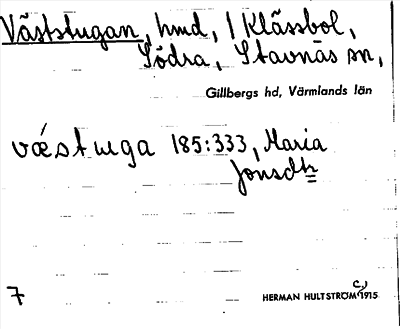 Väststugan, hmd, 1 Klässbol,
Södra, Stavnäs sn,
Gillbergs hd, Värmlands län
vǽstuga 185:333, Maria
Jonsdtr
7
HERMAN HULTSTRÖM 1915